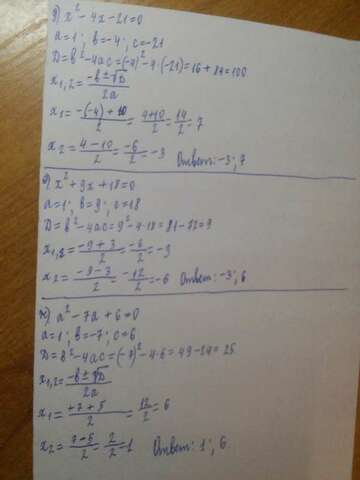 д) x² - 4x - 21 = 0
a = 1; b = -4; c = -21
D = b² - 4ac = (-4)² - 4 · (-21) = 16 + 84 = 100
x₁,₂ = (-b ± √D)/2a
x₁ = (-(-4) + 10)/2 = (4+10)/2 = 14/2 = 7
x₂ = (4 - 10)/2 = -6/2 = -3 Ответ: -3; 7
е) x² + 9x + 18 = 0
a = 1; b = 9; c = 18
D = b² - 4ac = 9² - 4 · 18 = 81 - 72 = 9
x₁,₂ = (-9 + 3)/2 = -6/2 = -3
x₂ = (-9 - 3)/2 = -12/2 = -6 Ответ: -3; 6
ж) a² - 7a + 6 = 0
a = 1; b = -7; c = 6
D = b² - 4ac = (-7)² - 4 · 6 = 49 - 24 = 25
x₁,₂ = (-b ± √D)/2a
x₁ = (+7 + 5)/2 = 12/2 = 6
x₂ = (7-5)/2 = 2/2 = 1 Ответ: 1; 6